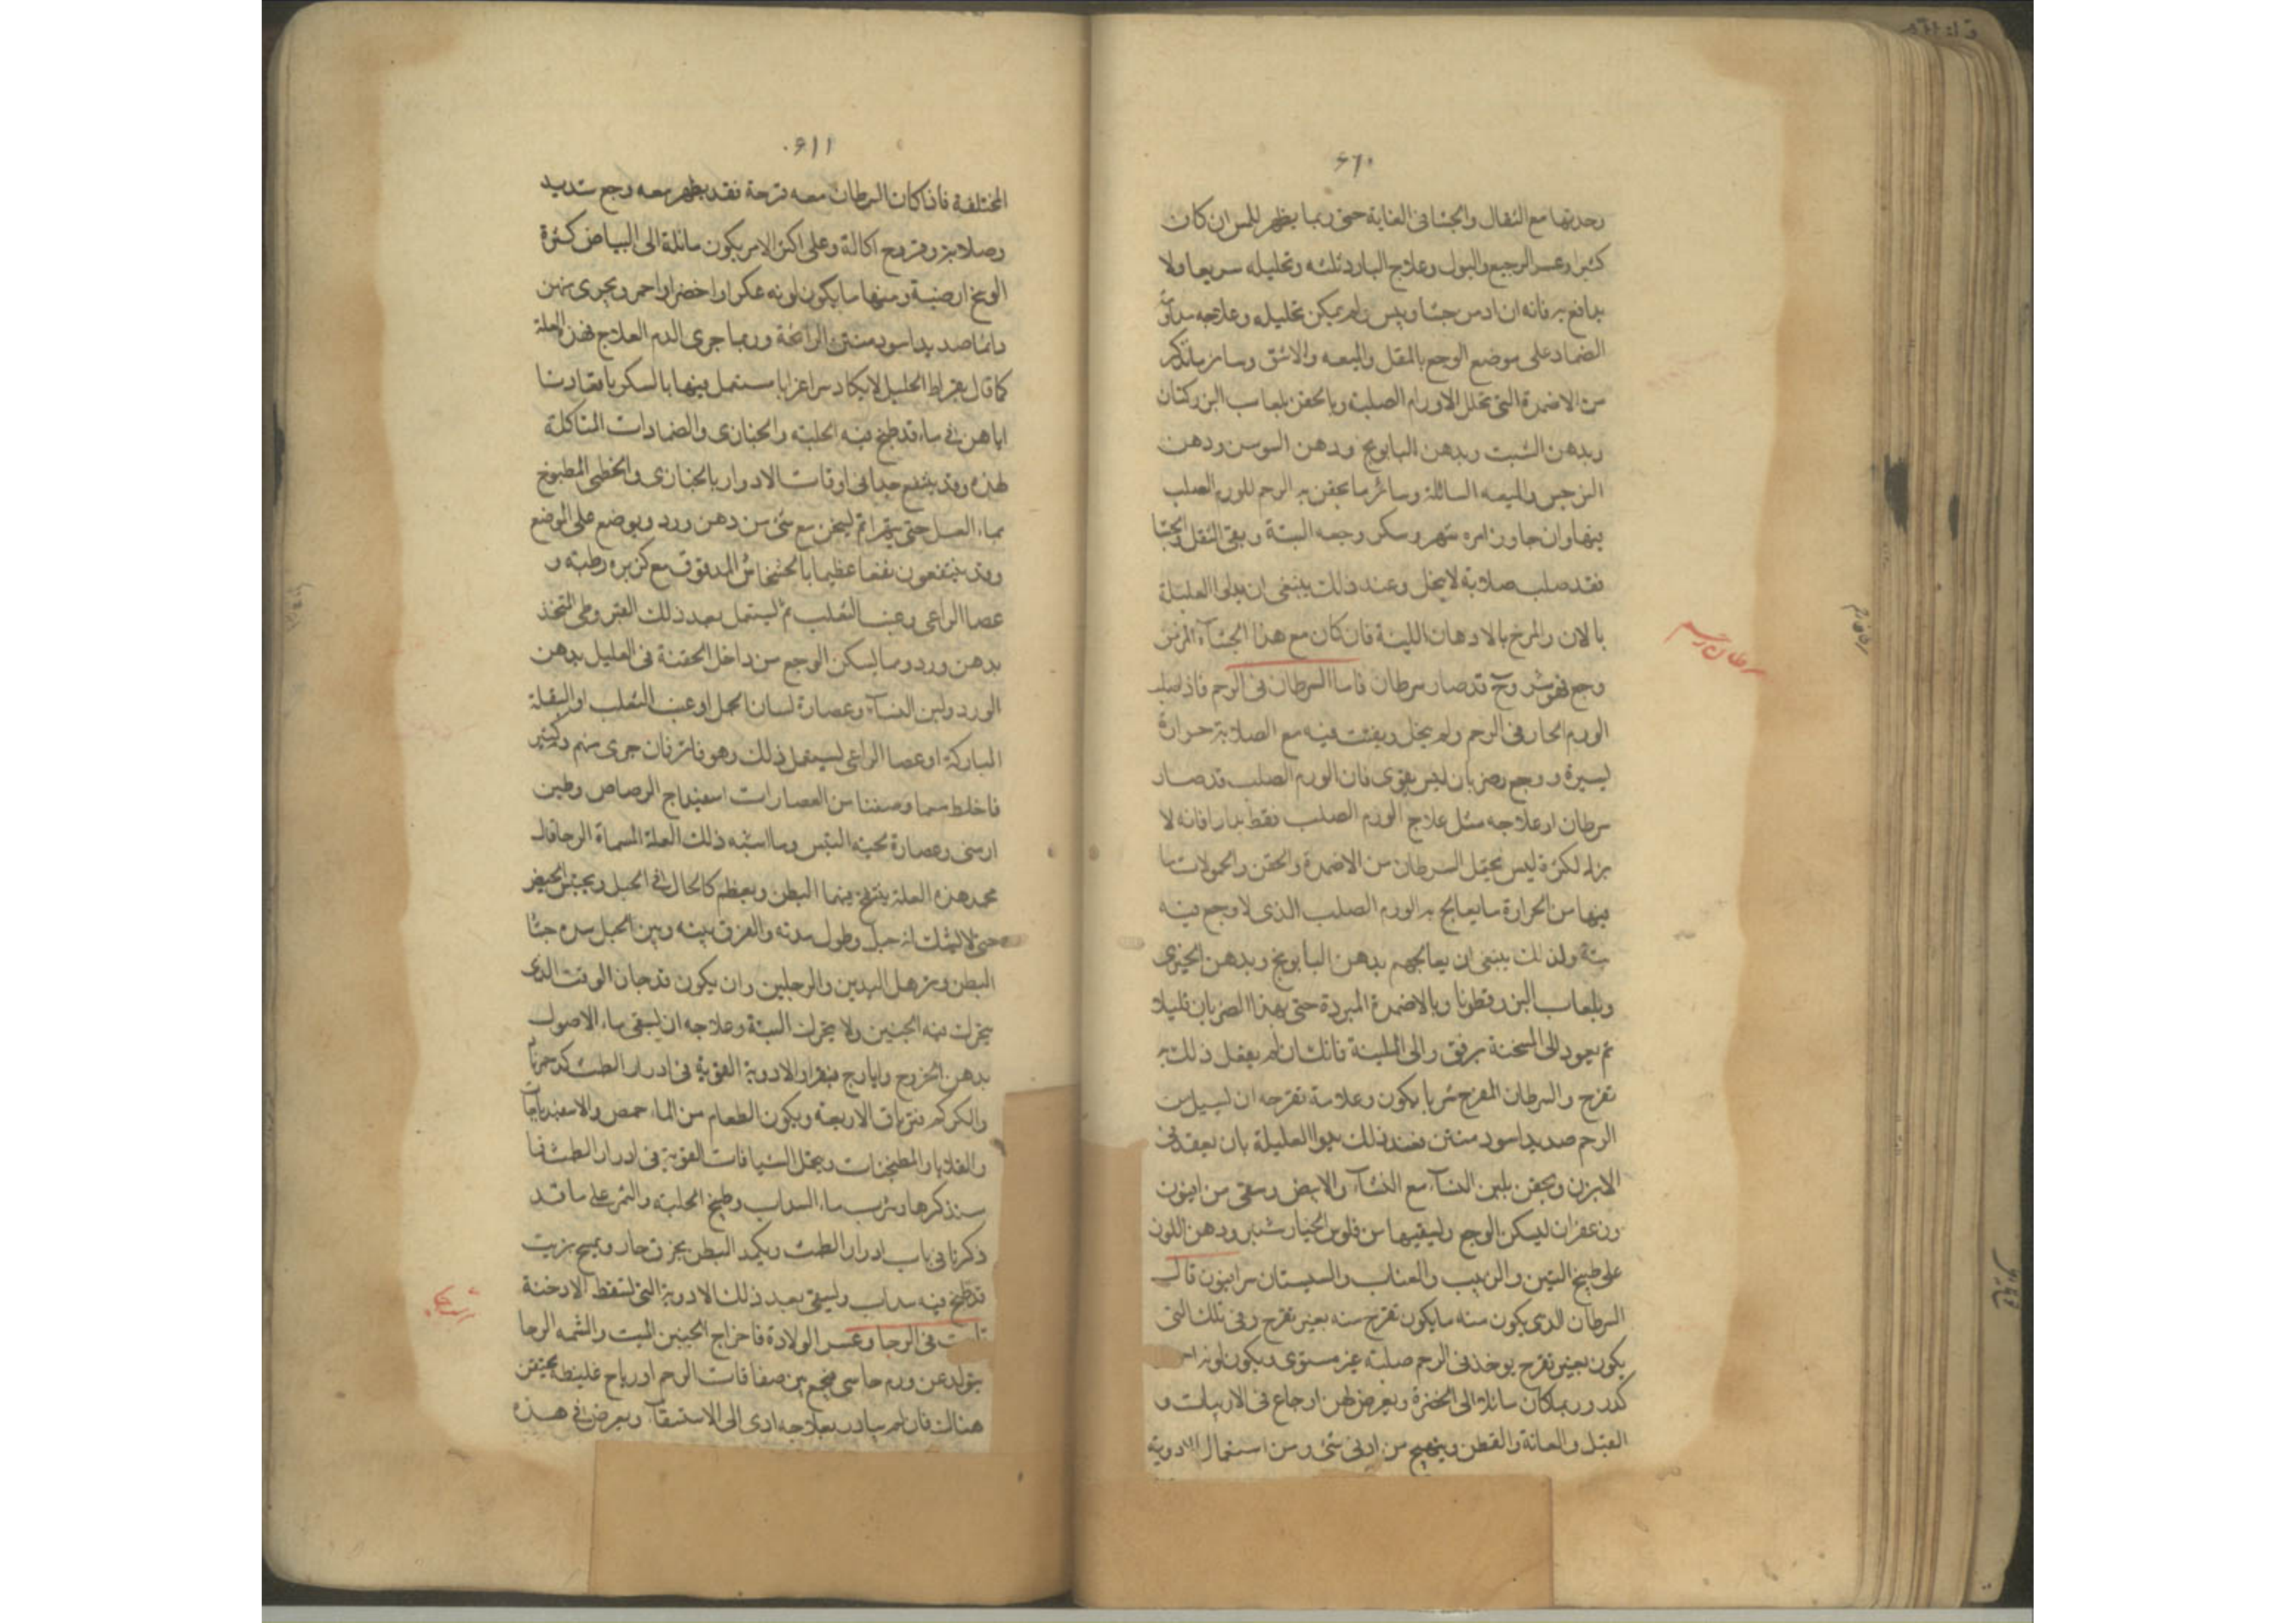 ٦١٠
وحدتها مع الثقل والجشا في الغاية حتى ربما يظهر للمس ان كان
كثيرا وعسر الرجيع والبول وعلاج البارد وتحليله سريعا ولا
يدافع به فانه ان ادمن جشا ويبس ولم يمكن تحليله وعلاجه
الضماد على موضع الوجع بالمقل والميعه والاشق وسائر ما يذكر
من الاضمدة التي تحلل الاورام الصلبة وبالحقن بلعاب البزركتان
وبدهن الشبت وبدهن البابونج ودهن السوسن ودهن
النرجس والميعه السائلة وسائر ما يحقن به الرحم للورم الصلب
فيها وان جاوز امره شهر وسكن وجعه البتة وبقي الثقل والجشا
فقد صلب صلابة لا يحل وعند ذلك ينبغي ان يداوا العليلة
بالابزن والمرخ بالادهان اللينة فان كان مع هذا الجشآء المزمن
وجع فهو شر وقد صار سرطان فاما السرطان في الرحم فاذا صلب
الورم الحار في الرحم ولم يحل وبقيت فيه مع الصلابة حرارة
يسيرة ووجع وضربان ليس بقوي فان الورم الصلب قد صار
سرطان او علاجه مثل علاج الورم الصلب فقط فانه لا
لكنه ليس يحتمل السرطان من الاضمدة والحقن والحمولات ما
فيها من الحرارة ما يعالج به الورم الصلب الذي لا وجع فيه
بتة ولذلك ينبغي ان يعالجهم بدهن البابونج وبدهن الخيري
وبلعاب البزرقطونا وبالاضمدة المبردة حتى يهدا الضربان قليلا
ثم يعود الى المسخنة برفق والى الملينة فانك ان لم يفعل ذلك به
تقرح والسرطان المقرح شر ما يكون وعلامة تقرحه ان يسيل من
الرحم صديد اسود منتن فعند ذلك يداوا العليلة بان يقعد في
الابزن ويحقن بلبن النسآء مع النشآء والابيض وسقي من افيون
وزعفران ليسكن الوجع وليسقيها من فلوس الخيارشنبر ودهن اللوز
على طبيخ التين والزبيب والعناب والسبستان سرابيون قال
السرطان الذي يكون منه ما يكون تقرح منه بغير تقرح وفي تلك التي
يكون بغير تقرح يوخذ في الرحم صلبة غير مستوى ويكون لونه
كدر وربما كان مائلا الى الخضرة ويعرض لهن اوجاع في الاربيات و
القبل والعانة والقطن ويتهيج من ادنى شئ ومن استعمال الادوية
سرطان رحم
٦١١
المختلفة فاذا كان السرطان معه قرحة فقد يظهر معه وجع شديد
وصلابة وقروح اكالة وعلى اكثر الامر يكون مائلة الى البياض كثيرة
الوسخ ارضية ومنها ما يكون لونه عكرا واخضر او احمر ويجري منهن
دائما صديد اسود منتن الرائحة وربما جرى الدم العلاج فهذه العلة
كما قال بقراط الجليل لا يكاد
اياهن في ماء قد طبخ فيه الحلبة والخبازى والضمادات المشاكلة
لهذه وقد ينتفع جدا في اوقات الادوار بالخبازى والخطمي المطبوخ
بماء العسل حتى يتهرا ثم يسخن مع شئ من دهن ورد ويوضع على الوضع
وقد ينتفعون نفعا عظيما بالخشخاش المدقوق مع كزبره رطبة و
عصا الراعي وعنب الثعلب ثم ليستعمل بعد ذلك القيروطي المتخذ
بدهن ورد ومما يسكن الوجع من داخل الحقنة في العليل بدهن
الورد ولبن النسآء وعصارة لسان الحمل او عنب الثعلب او البقلة
المباركة او عصا الراعي ليستعمل ذلك وهو فاتر فان جرى منهم دم كثير
فاخلط مما وصفنا من العصارات اسفيداج الرصاص وطين
ارمني وعصارة لحية التيس وما اشبه ذلك العلة المسماة الرجا قال
محمد هذه العلة ينتفخ فيها البطن ويعظم كالحال في الحبل ويحتبس الحيض
حتى لا يشك انه حبل وطول مدته والفرق بينه وبين الحبل جشا
البطن وترهل اليدين والرجلين وان يكون قد جاز الوقت الذي
يتحرك فيه الجنين ولا يتحرك البتة وعلاجه ان ليسقى ماء الاصول
بدهن الخروج وايارج فيقرا والادوية القوية في ادرار الطمث
والكركم وترياق الاربعة ويكون الطعام من الماء حمص والاسفيدباجات
والقلايا والمطجنات ويحمل الشيافات القوية في ادرار الطمث فما
سنذكرها وشرب ماء السداب وطبيخ الحلبة والتمر على ما قد
ذكرنا في باب ادرار الطمث ويكمد البطن بخرق حار ويمسح بزيت
قد طبخ فيه سداب وليسقى بعد ذلك الادوية التي لتسقط الاجنة
في الرجا وعسر الولادة فاخراج الجنين الميت والمشمه الرجا
يتولد عن ورم جاسي يجتمع بين صفاقات الرحم او رياح غليظة يحتقن
هناك فان لم يبادر بعلاجه ادى الى الاستسقآء ويعرض في هذه